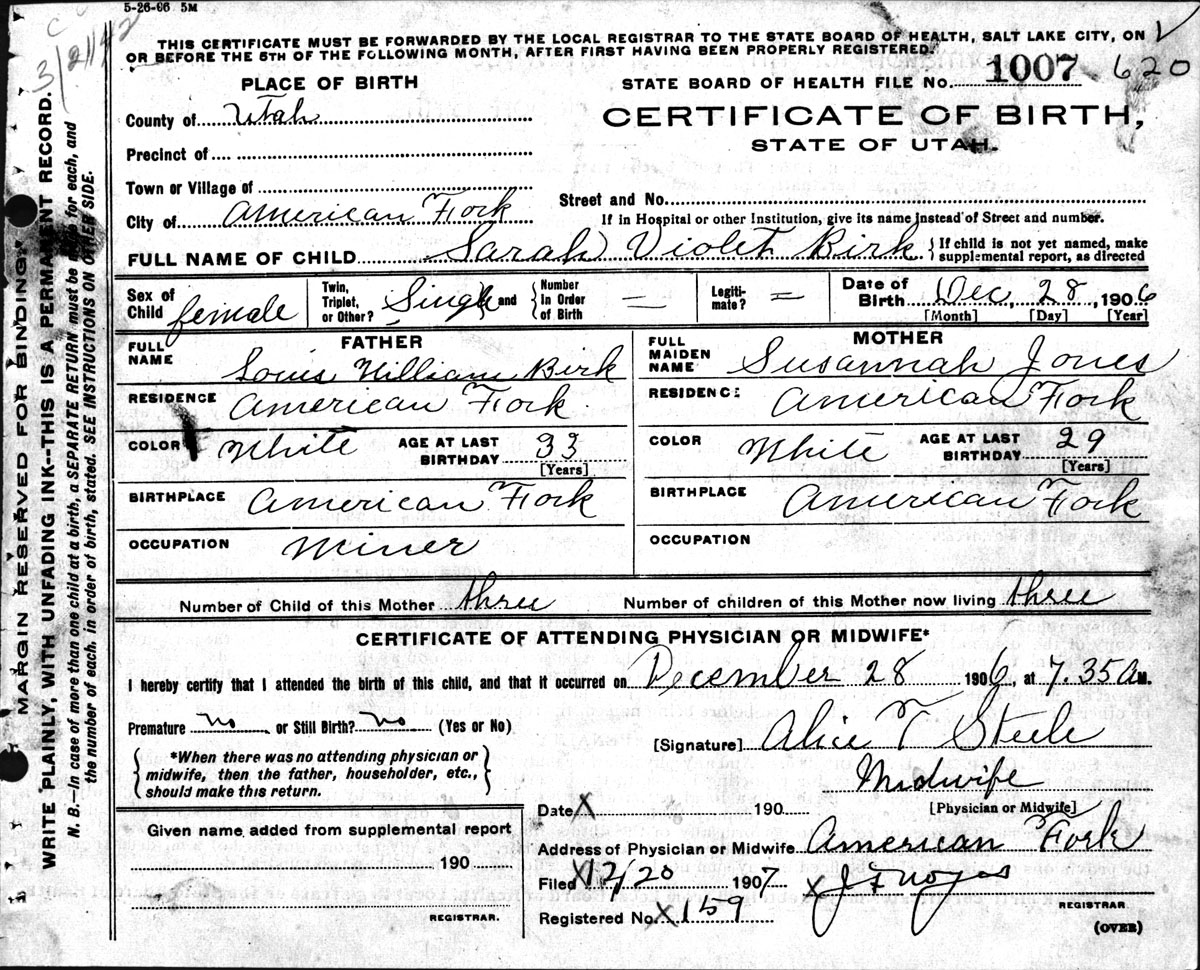 5-26-06 5M
3/21/42
THIS CERTIFICATE MUST BE FORWARDED BY THE LOCAL REGISTRAR TO THE STATE BOARD OF HEALTH, SALT LAKE CITY, ON
OR BEFORE THE 5TH OF THE FOLLOWING MONTH, AFTER FIRST HAVING BEEN PROPERLY REGISTERED.
PLACE OF BIRTH
STATE BOARD OF HEALTH FILE NO. 1007 - 620
County of Utah
CERTIFICATE OF BIRTH,
STATE OF UTAH.
Precinct of
Town or Village of
Street and No.
City of American Fork
If in Hospital or other Institution, give its name instead of Street and number.
FULL NAME OF CHILD Sarah Violet Birk { If child is not yet named, make supplemental report, as directed
Sex of Child female Twin, Triplet, or Other? Single and Number In Order of Birth — Legitimate? = Date of Birth Dec, 28, 1906
[Month] [Day] [Year]
FATHER
MOTHER
FULL NAME Louis William Birk
FULL MAIDEN NAME Susannah Jones
RESIDENCE American Fork
RESIDENCE American Fork
COLOR White AGE AT LAST BIRTHDAY 33 [Years]
COLOR White AGE AT LAST BIRTHDAY 29 [Years]
BIRTHPLACE American Fork
BIRTHPLACE American Fork
OCCUPATION Miner
OCCUPATION
Number of Child of this Mother three Number of children of this Mother now living three
CERTIFICATE OF ATTENDING PHYSICIAN OR MIDWIFE*
I hereby certify that I attended the birth of this child, and that it occurred on December 28 1906, at 7.35 A M.
Premature no or Still Birth? no (Yes or No)
[Signature] Alice T Steele
{ *When there was no attending physician or
midwife, then the father, householder, etc.,
should make this return. }
Midwife
[Physician or Midwife]
Date X 190
Given name added from supplemental report
190
REGISTRAR.
Address of Physician or Midwife American Fork
Filed X 12/20 1907 X
REGISTRAR.
Registered No. X 159
(OVER)
MARGIN RESERVED FOR BINDING.
WRITE PLAINLY, WITH UNFADING INK--THIS IS A PERMANENT RECORD.
N. B.—In case of more than one child at a birth, a SEPARATE RETURN must be made for each, and
the number of each, in order of birth, stated. SEE INSTRUCTIONS ON OTHER SIDE.